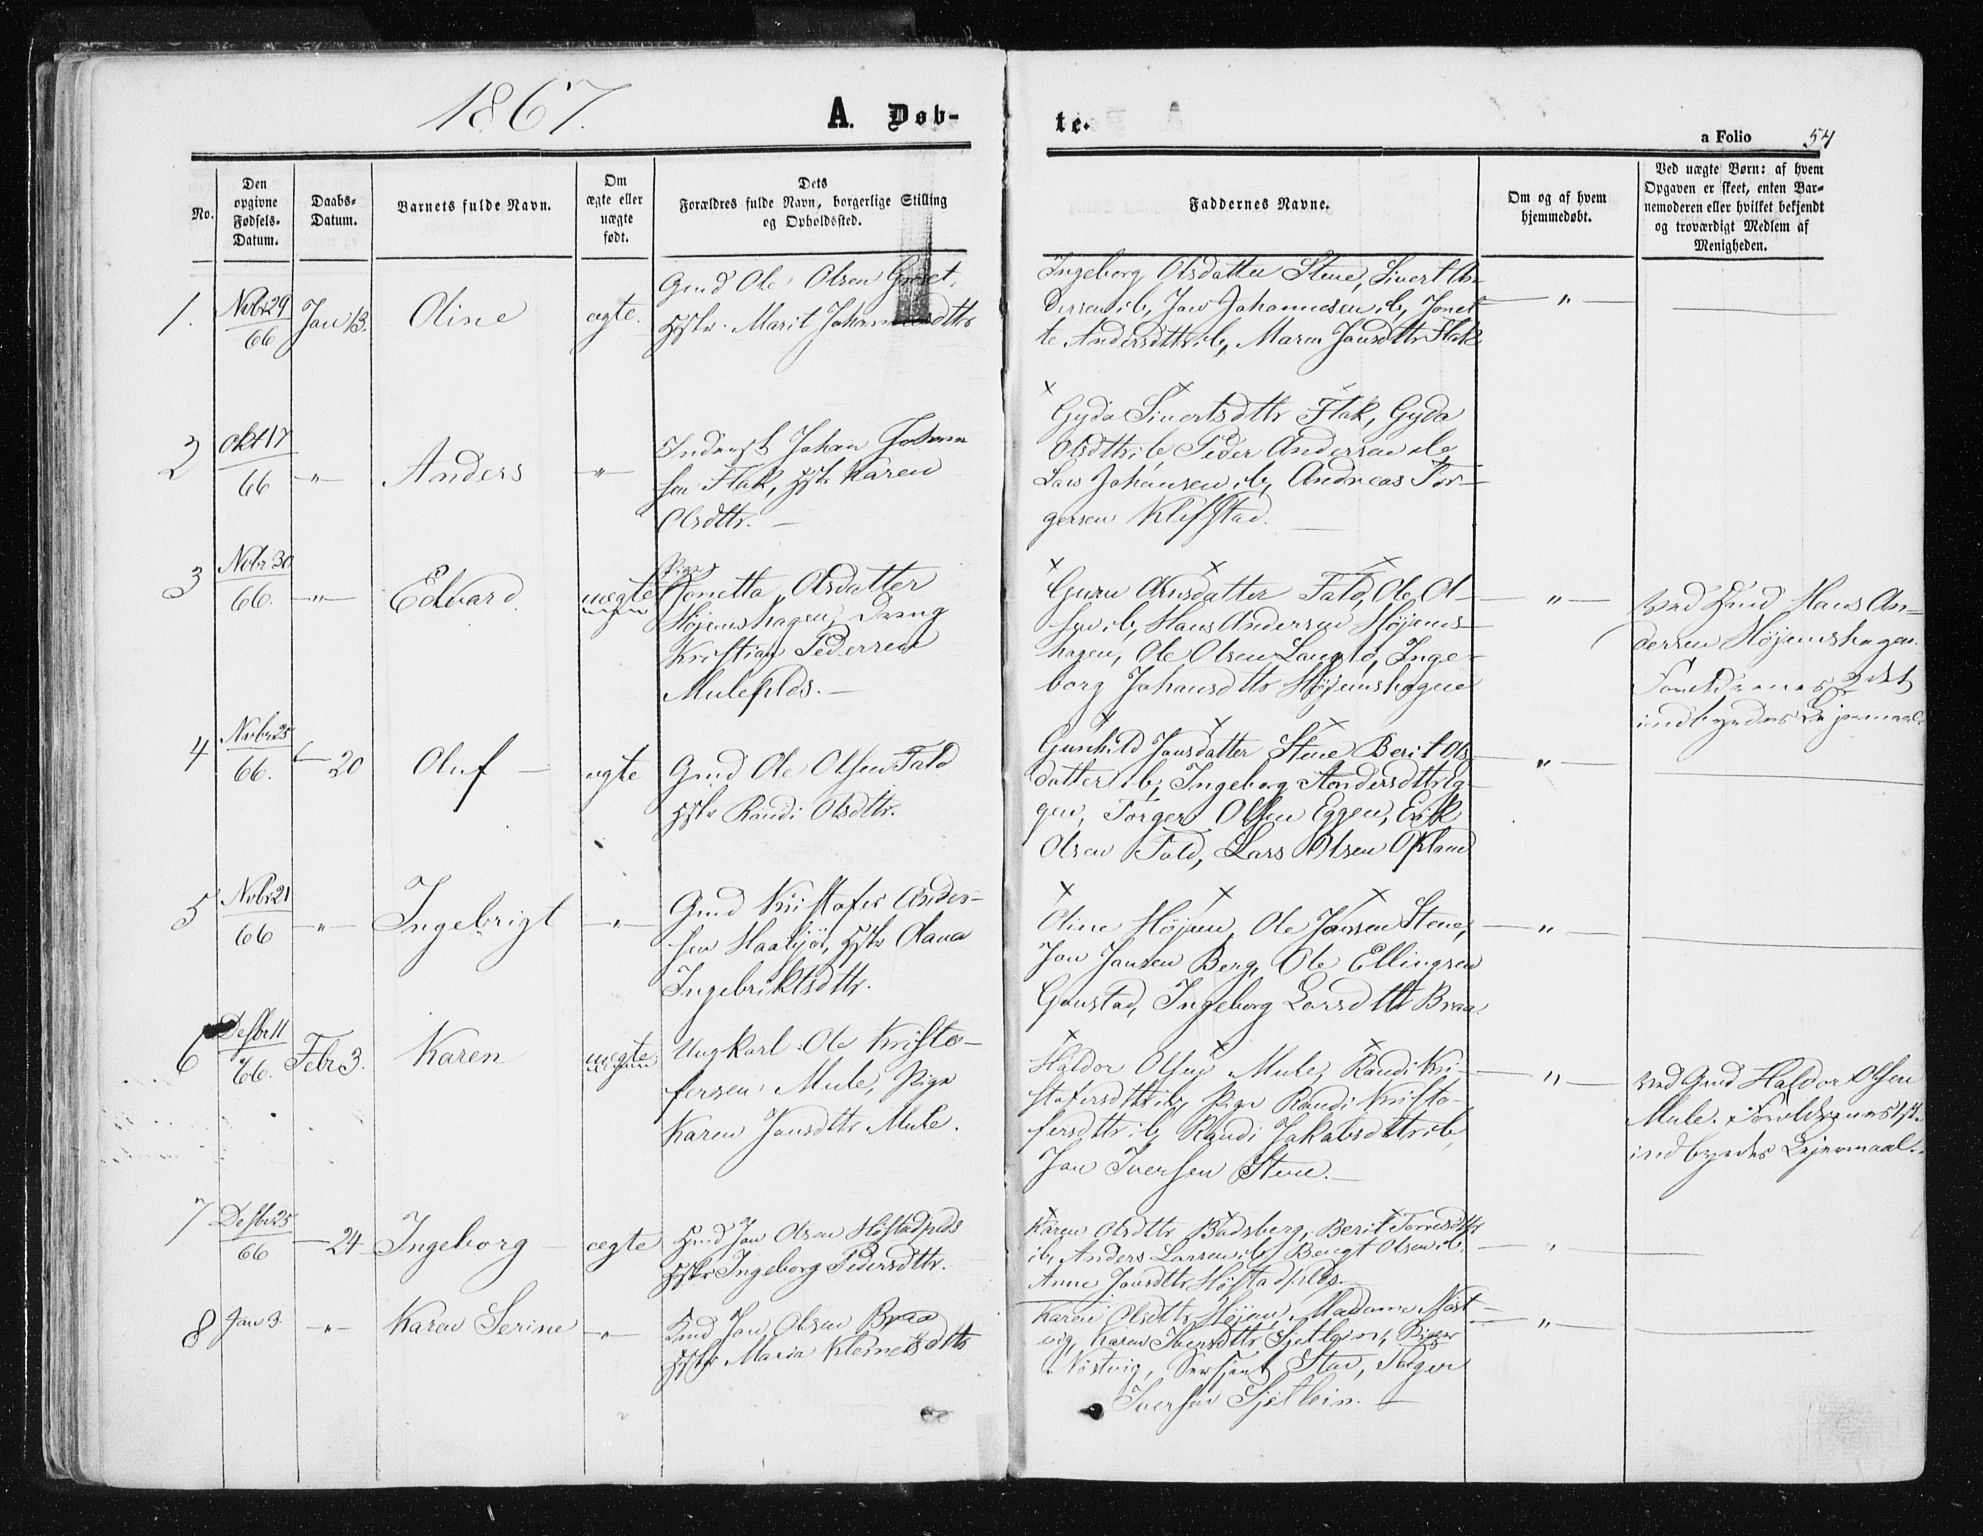 1867.
A. Døb-
te.
a Folio 54
No.
Den
opgivne
Fødsels-
Datum.
Daabs-
Datum.
Barnets fulde Navn.
Om
ægte eller
uægte
født.
Dets
Forældres fulde Navn, borgerlige Stilling
og Opholdssted.
Faddernes Navne.
Om og af hvem
hjemmedøbt.
Ved uægte Børn: af hvem
Opgaven er skeet, enten Bar-
nemoderen eller hvilket bekjendt
og troværdigt Medlem af
Menigheden.
1. Nvbr 29
66
Jan 13.
Oline
ægte.
Gmd Ole Olsen
Hstr. Marit
Ingeborg Olsdatter Stene, Sivert An-
dersen ib, Jan Johannesen ib, Jonet-
te Andersdttr ib, Maren Jansdttr Flak
— „ —
2 Okt 17
66
— „ —
Anders
— „ —
Johan
sen Flak, Hstr Karen
Olsdttr. —
Gyda Sivertsdttr Flak, Gyda
Olsdttr ib Peder Andersen ib
Lars Johansen ib, Andreas Tor-
gersen Klefstad.
3 Nvbr 30
66.
— „ —
Edvard
uægte
Pige
Jonetta Olsdatter
Højemshagen, Dreng
Kristian Pedersen
Muleplds. —
Guru Arnsdatter Fald, Ole Ol-
sen ib, Hans Andersen Højems-
hagen, Ole Olsen Langlo, Inge-
borg Johansdttr Højemshagen
— „ —
ved Hmd Hans An-
dersen Højemshagen.
Forældrenes 2det
indbyrdes Lejermaal.
4 Nvbr 25
66.
— 20
Oluf —
ægte
Gmd Ole Olsen Fald
Hstr Randi Olsdttr.
Gunhild Jansdatter Stene Berit Ols-
datter ib, Ingeborg Andersdttr Eg-
gen, Torger Olsen Eggen, Erik
Olsen Fald, Lars Olsen
— „ —
5 Nvbr 21
66
— „ —
Ingebrigt
— „ —
Gmd Kristofer Ander-
sen Hstr Olava
Ingebriktsdttr.
Oline Højem, Ole Jansen Stene,
Jan Jansen Berg, Ole Ellingsen
Gaustad, Ingeborg Larsdttr Braa.
— „ —
6 Desbr 11
66.
Febr 3.
Karen
uægte
Ungkarl Ole Kristo-
fersen Mule, Pige
Karen Jansdttr Mule.
Haldor Olsen Mule, Randi Kri-
stofersdttr ib, Pige Randi Kristo-
fersdttr ib, Randi Jakobsdttr ib
Jan Iversen Stene. —
— „ —
ved Gmd Haldor Olsen
Mule. Forældrenes 1st.
indbyrdes Lejermaal.
7 Desbr 25
66
— 24
Ingeborg
ægte
Hmd Jan Olsen Høstadplds
Hstr Ingeborg Pedersdttr.
Karen Olsdttr Berit Torresdttr
ib, Anders Larsen ib, Bengt Olsen ib,
Anne Jansdttr Høstadplds.
8 Jan 3.
— „ —
Karen Serine
— „ —
Gmd Jan Olsen Braa
Hstr Maria Klemetsdttr
Karen Olsdttr Højem, Madame Nøst-
vig, Karen Iversdttr Sjetlein, Birger
Nøstvig, Sersjant Stav, Torger
Iversen Sjetlein. —
— „ —